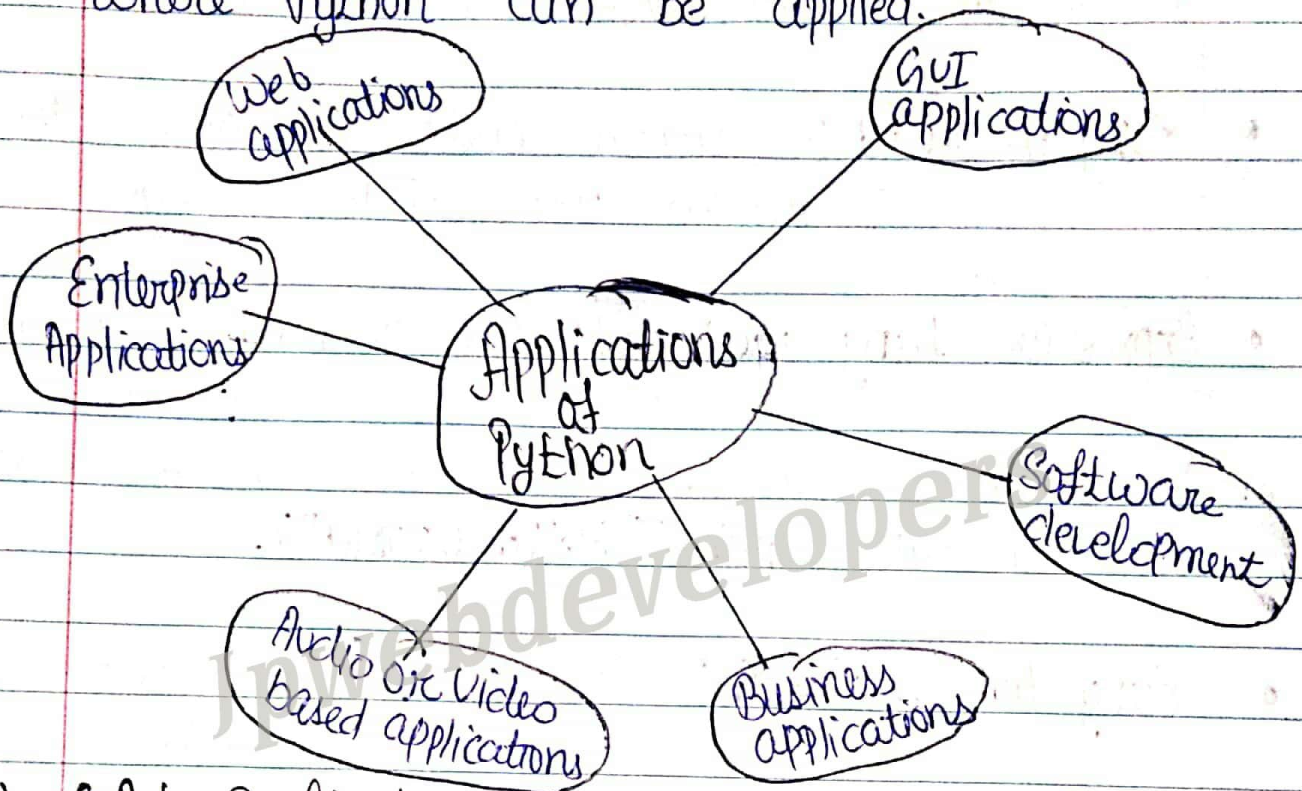 where Python can be applied.
Web
applications
GUI
applications
Enterprise
Applications
Applications
of
Python
Software
development
Audio or Video
based applications
Business
applications
Jpwebdevelopers